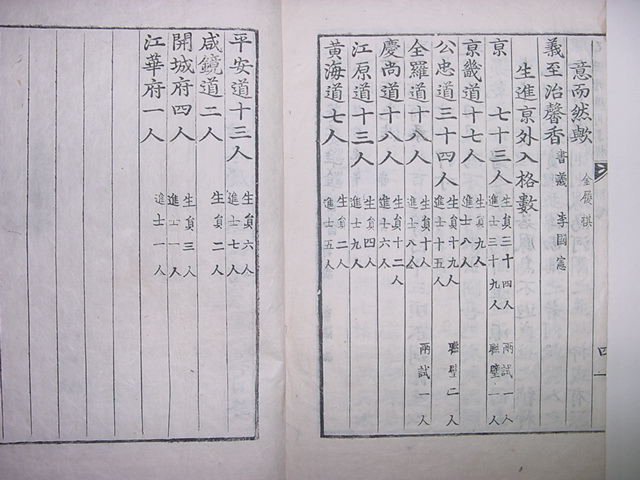 意而然歟 金履祺
義至治馨香 書義 李國憲
生進京外入格數
京 七十三人 生員三十四人 進士三十九人 兩試一人 聯璧一人
京畿道十七人 生員九人 進士八人
公忠道三十四人 生員十九人 進士十五人 聯璧二人
全羅道十八人 生員十人 進士八人 兩試一人
慶尚道十八人 生員十二人 進士六人
江原道十三人 生員四人 進士九人
黃海道七人 生員二人 進士五人
四十
平安道十三人 生員六人 進士七人
咸鏡道二人 生員二人
開城府四人 生員三人 進士一人
江華府一人 進士一人